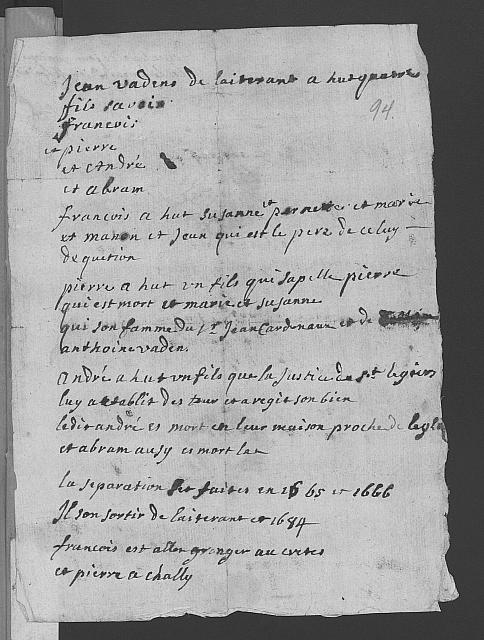 Jean vadens de laiterant a hut quatre
fils savoir
francois
et pierre
et André
et abram
94.
francois a hut susanne et pernette et marie
et manon et Jean qui est le pere de celuy
de quetion
pierre a hut un fils qui sapelle pierre
qui est mort et marie et susanne
qui son famme du Sr Jean Cardenaux et de
anthoine vaden.
André a hut un fils que la Justice de St legier
luy a etablit des teur et a regit son bien
ledit andré es mort en leur maison proche de
et abram ausy es mort la
la separation set faites en 1665 et 1666
Il son sortir de laiterant et 1684
francois est aller granger au cretes
et pierre a chally